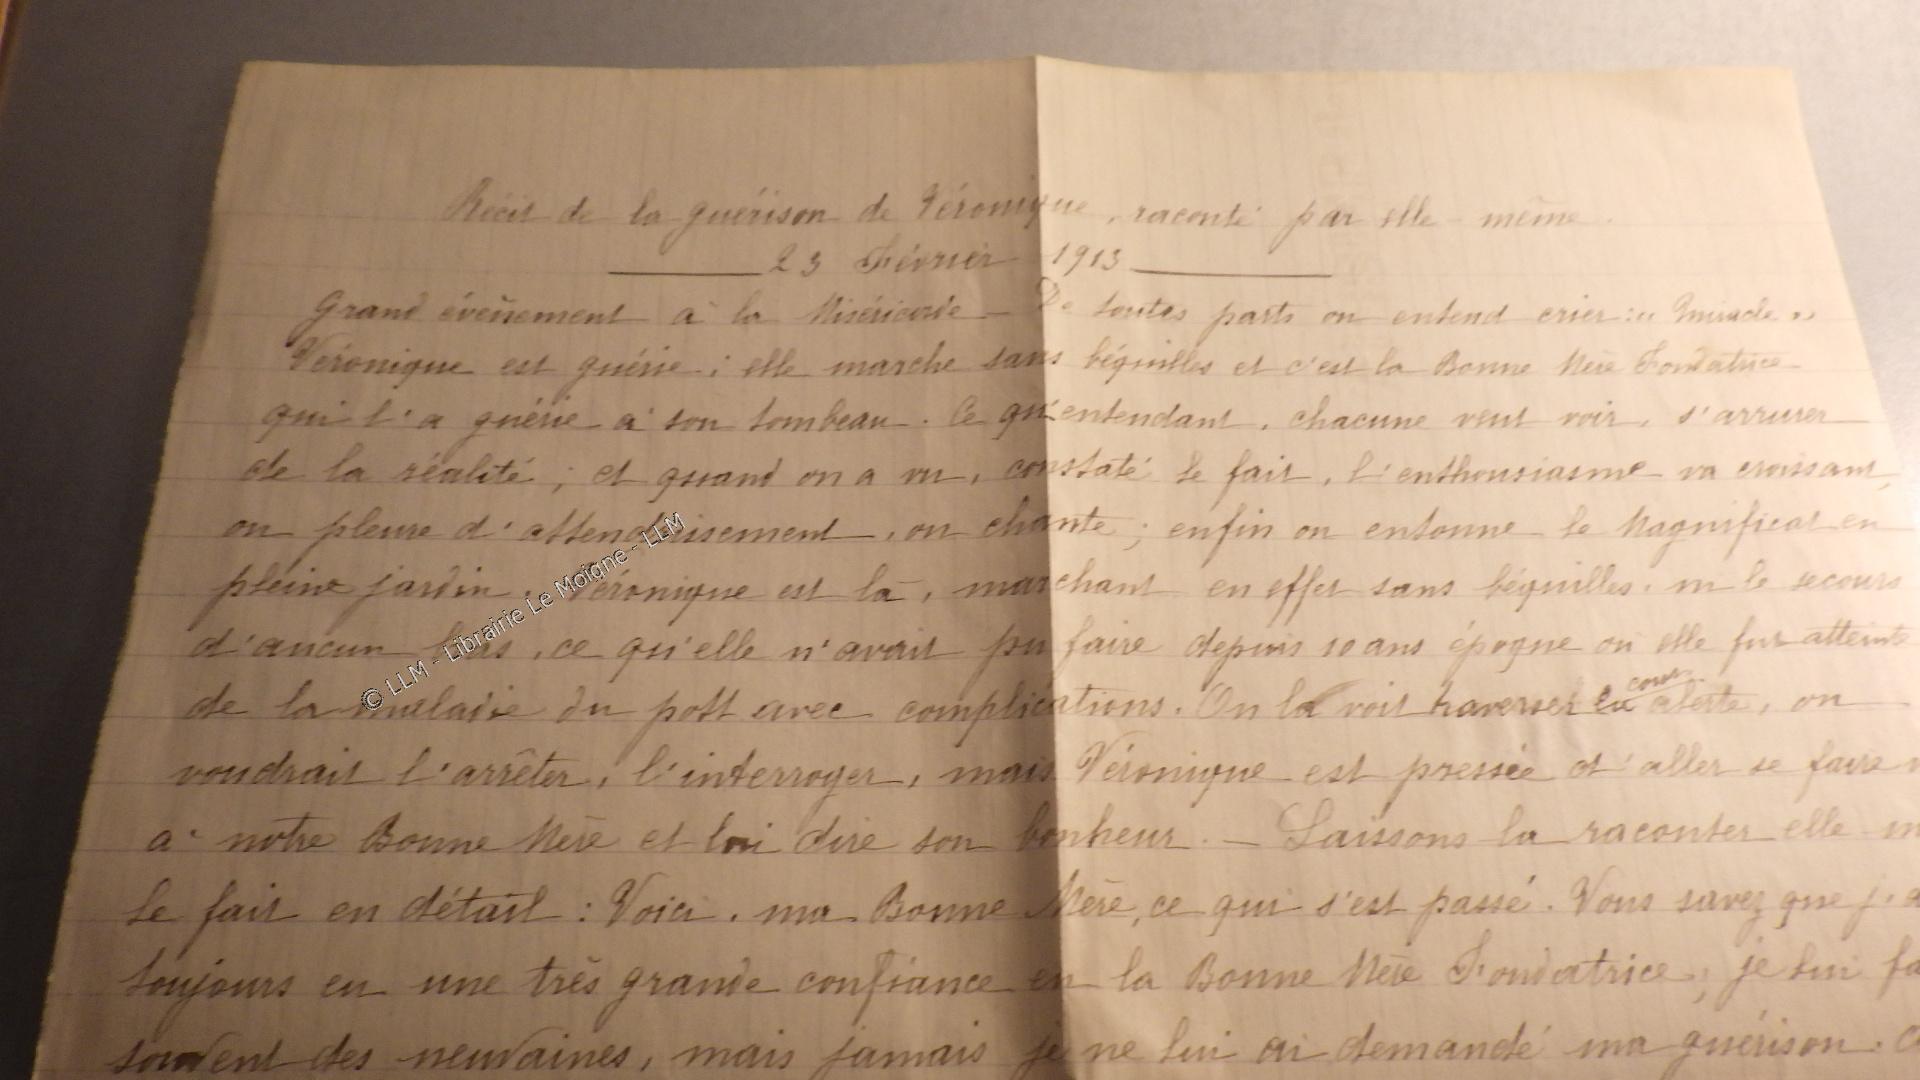 Récit de la guérison de Véronique, raconté par elle-même.
23 Février 1913
Grand évènement à la Miséricorde - De toutes parts on entend crier : " Miracle "
Véronique est guérie ; elle marche sans béquilles et c'est la Bonne Mère Fondatrice
qui l'a guérie à son tombeau. Ce qu'entendant, chacune veut voir, s'assurer
de la réalité ; et quand on a vu, constaté le fait, l'enthousiasme va croissant,
on pleure d'attendrissement, on chante ; enfin on entonne le Magnificat en
pleine jardin. Véronique est là, marchant en effet sans béquilles, ni le secours
d'aucun bras, ce qu'elle n'avait pu faire depuis 10 ans époque où elle fut atteinte
de la maladie du pott avec complications. On la voit traverser la cour alerte, on
voudrait l'arrêter, l'interroger, mais Véronique est pressée d'aller se faire
à notre Bonne Mère et lui dire son bonheur. - Laissons la raconter elle
le fait en détail : Voici, ma Bonne Mère, ce qui s'est passé. Vous savez que j'
toujours eu une très grande confiance en la Bonne Mère Fondatrice, je lui
souvent des neuvaines, mais jamais je ne lui ai demandé ma guérison.
© LLM - Librairie Le Moigne - LLM